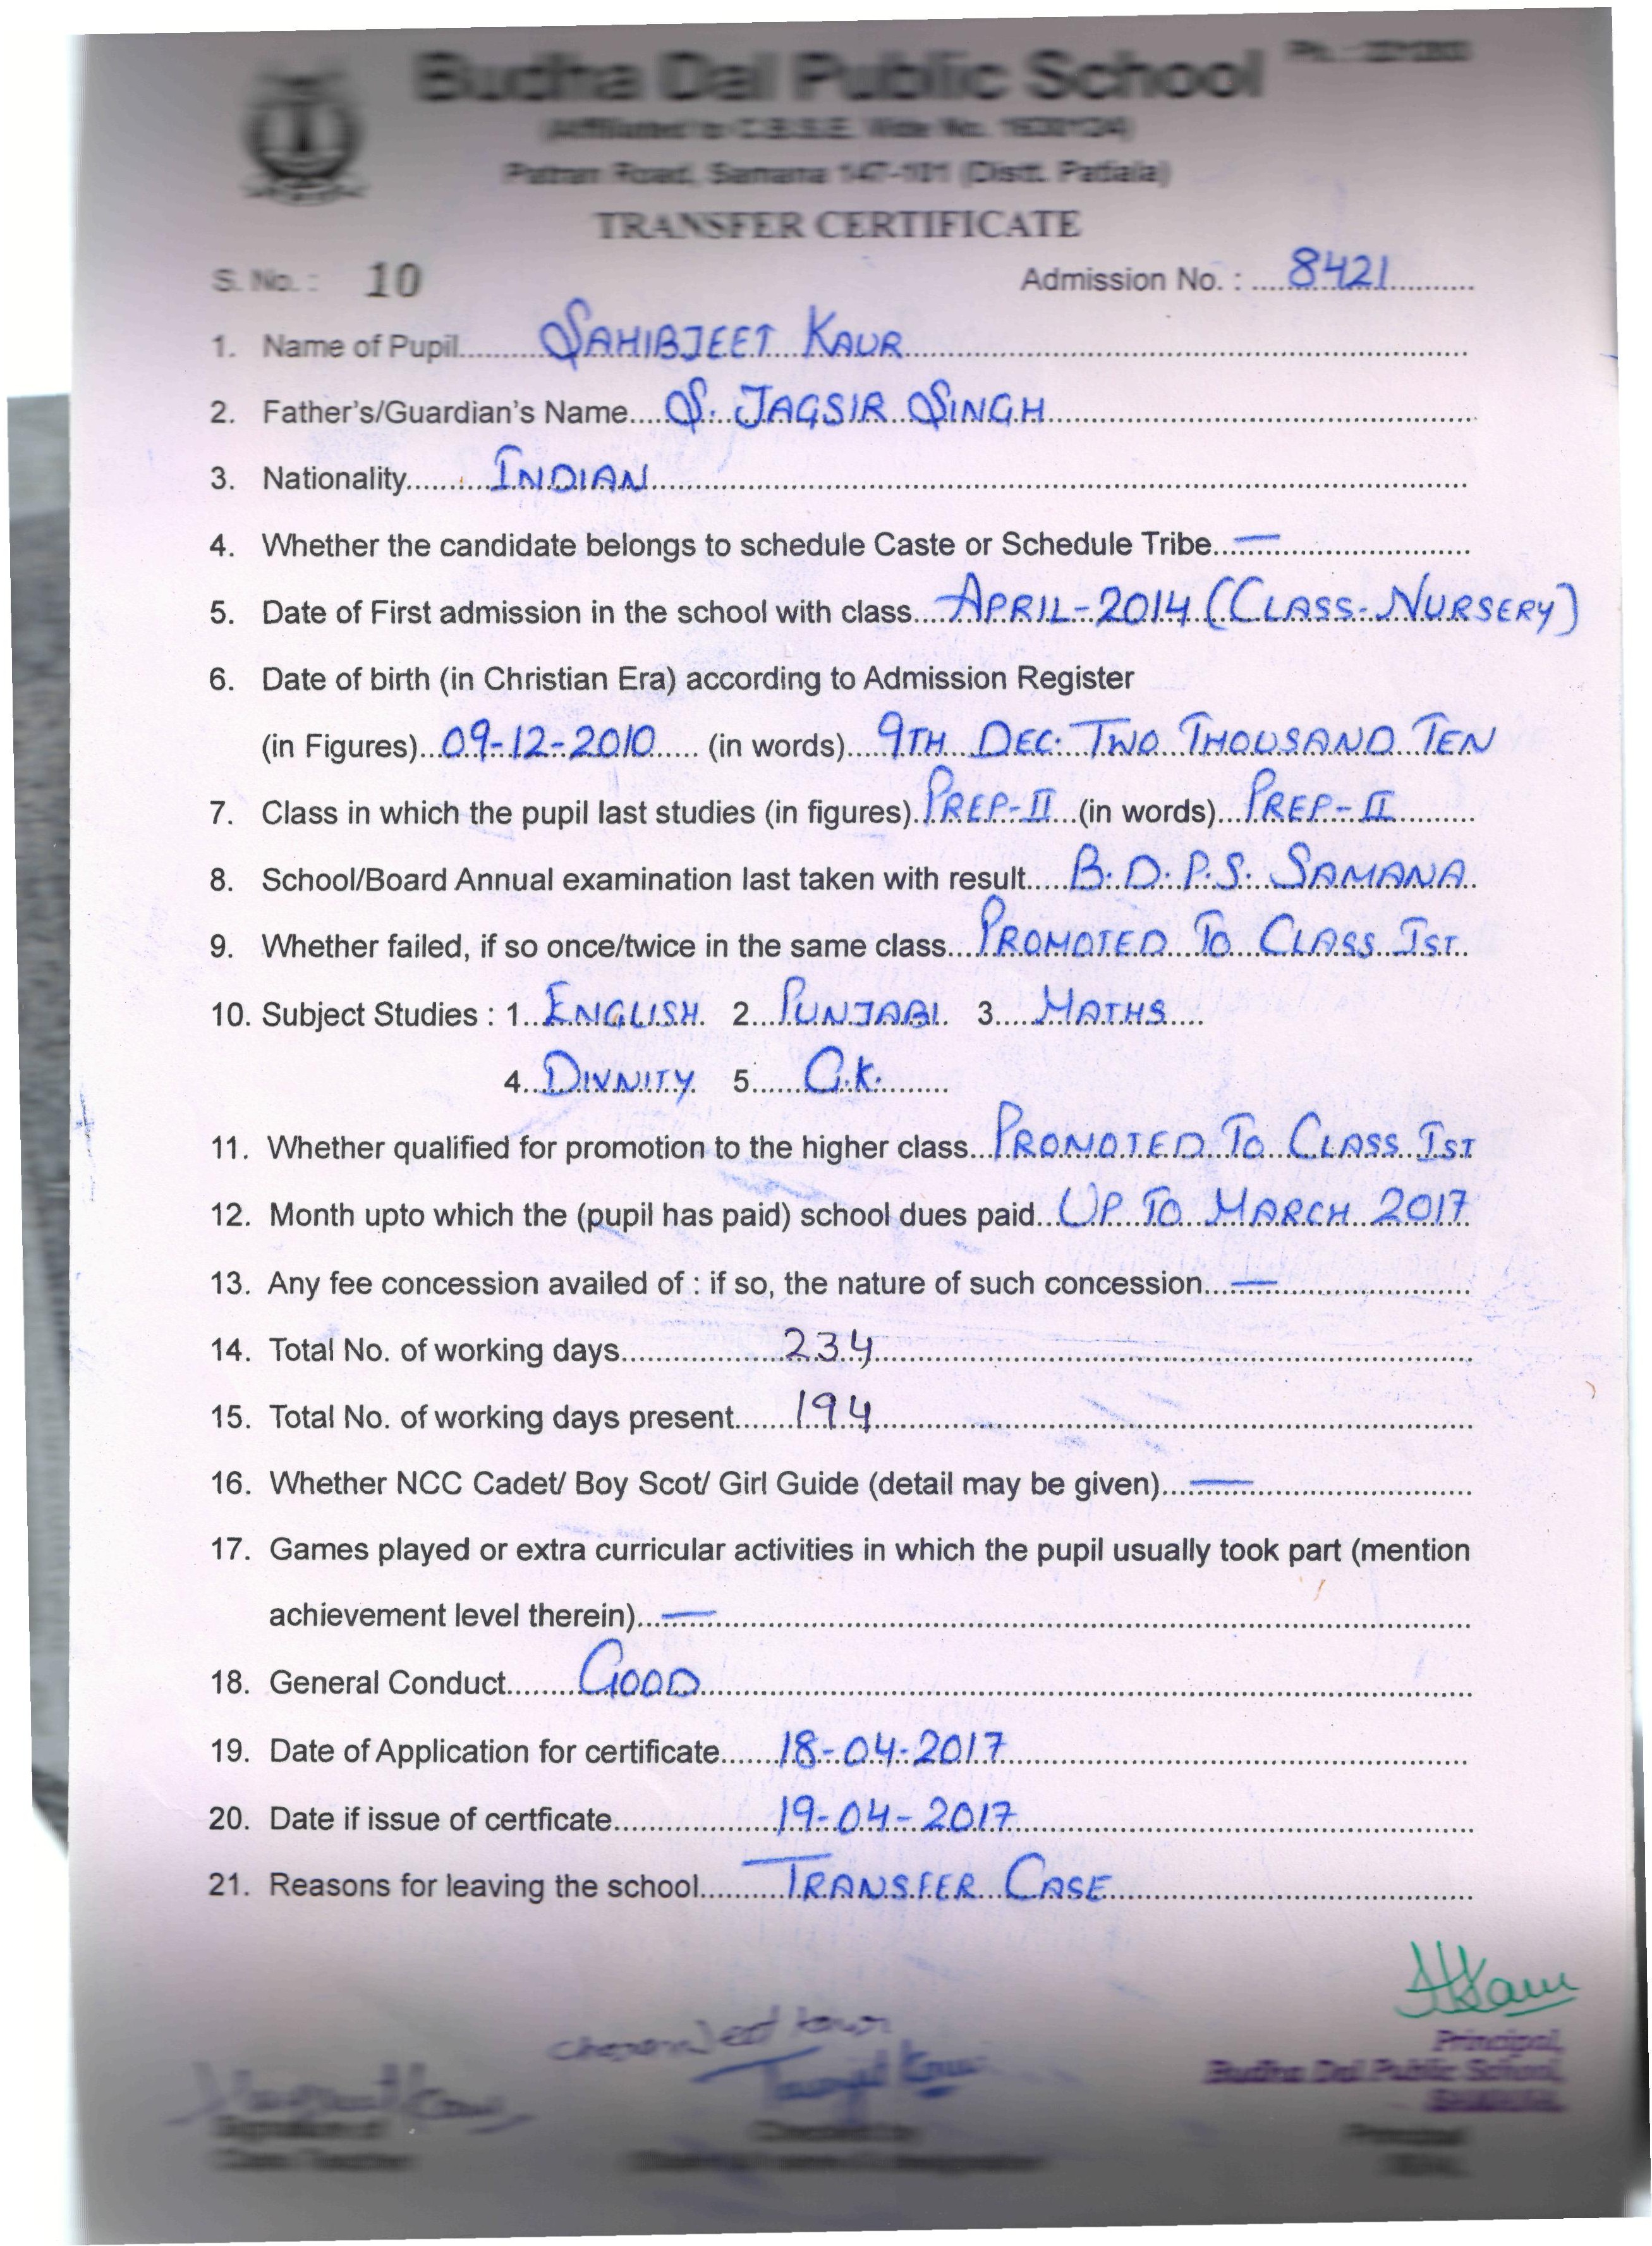 Budha Dal Public School
(Affiliated to C.B.S.E. Vide No. 1630124)
Patran Road, Samana 147-101 (Distt. Patiala)
TRANSFER CERTIFICATE
S. No. : 10 Admission No. : 8421
1. Name of Pupil SAHIBJEET KAUR
2. Father's/Guardian's Name S. JAGSIR SINGH
3. Nationality INDIAN
4. Whether the candidate belongs to schedule Caste or Schedule Tribe —
5. Date of First admission in the school with class APRIL-2014 (CLASS-NURSERY)
6. Date of birth (in Christian Era) according to Admission Register
(in Figures) 09-12-2010 (in words) 9TH DEC. TWO THOUSAND TEN
7. Class in which the pupil last studies (in figures) PREP-II (in words) PREP-II
8. School/Board Annual examination last taken with result B.D.P.S. SAMANA
9. Whether failed, if so once/twice in the same class PROMOTED TO CLASS IST
10. Subject Studies : 1. ENGLISH 2 PUNJABI 3 MATHS
4 DIVNITY 5 G.K.
11. Whether qualified for promotion to the higher class PROMOTED TO CLASS IST
12. Month upto which the (pupil has paid) school dues paid UP TO MARCH 2017
13. Any fee concession availed of : if so, the nature of such concession —
14. Total No. of working days 234
15. Total No. of working days present 194
16. Whether NCC Cadet/ Boy Scot/ Girl Guide (detail may be given) —
17. Games played or extra curricular activities in which the pupil usually took part (mention
achievement level therein) —
18. General Conduct GOOD
19. Date of Application for certificate 18-04-2017
20. Date if issue of certficate 19-04-2017
21. Reasons for leaving the school TRANSFER CASE
Principal,
Budha Dal Public School,
SAMANA.
Signature of
Class Teacher
Checked by
Principal